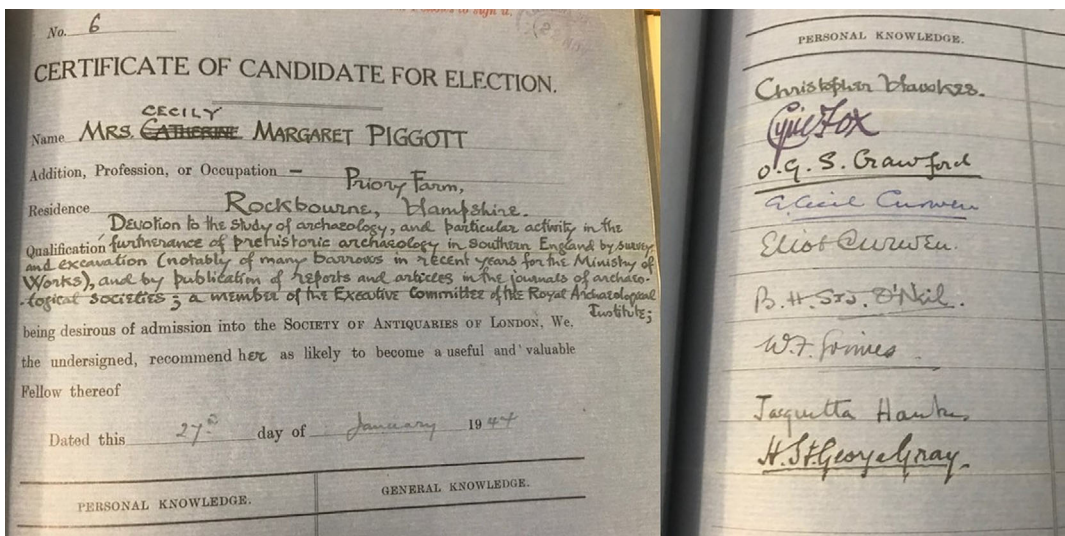 to sign it.
No. 6
CERTIFICATE OF CANDIDATE FOR ELECTION.
CECILY
Name MRS. CATHERINE MARGARET PIGGOTT
Addition, Profession, or Occupation —
Priory Farm,
Residence Rockbourne, Hampshire.
Devotion to the study of archaeology, and particular activity in the
Qualification furtherance of prehistoric archaeology in Southern England by survey
and excavation (notably of many barrows in recent years for the Ministry of
Works), and by publication of reports and articles in the journals of archaeo-
-logical societies; a member of the Executive Committee of the Royal Archaeological
Institute;
being desirous of admission into the SOCIETY OF ANTIQUARIES OF LONDON, We,
the undersigned, recommend her as likely to become a useful and valuable
Fellow thereof
Dated this 27th day of January 1944
PERSONAL KNOWLEDGE. GENERAL KNOWLEDGE.
PERSONAL KNOWLEDGE.
Christopher Hawkes.
Cyril Fox
O. G. S. Crawford
E. Cecil Curwen
Eliot Curwen.
B. H. St J. O'Neil.
W. F. Grimes
Jacquetta Hawkes
H. St. George Gray.